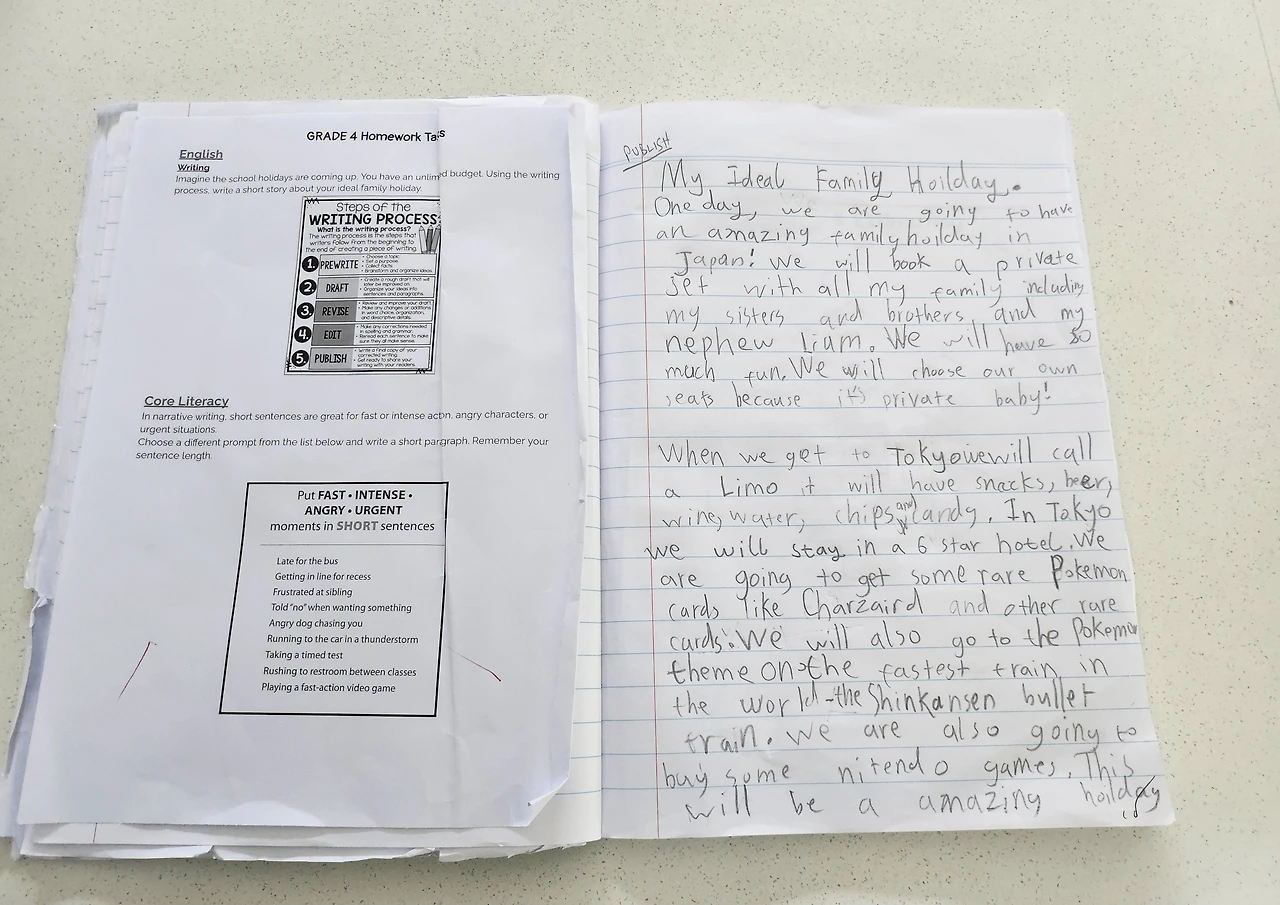 GRADE 4 Homework Ta s
English
Writing
Imagine the school holidays are coming up. You have an unlim d budget. Using the writing
process, write a short story about your ideal family holiday.
Steps of the
WRITING PROCESS
What is the writing process?
The writing process is the steps that
writers follow from the beginning to
the end of creating a piece of writing.
1. PREWRITE
• Choose a topic.
• Set a purpose.
• Collect facts.
• Brainstorm and organize ideas.
2. DRAFT
• Create a rough draft that will
later be improved on.
• Organize your ideas into
sentences and paragraphs.
3. REVISE
• Review and improve your draft.
• Make any changes or additions
in word choice, organization,
and descriptive details.
4. EDIT
• Make any corrections needed
in spelling and grammar.
• Reread each sentence to make
sure they all make sense.
5. PUBLISH
• Write a final copy of your
corrected writing.
• Get ready to share your
writing with your readers.
Core Literacy
In narrative writing, short sentences are great for fast or intense act n, angry characters, or
urgent situations.
Choose a different prompt from the list below and write a short par graph. Remember your
sentence length.
Put FAST • INTENSE •
ANGRY • URGENT
moments in SHORT sentences
Late for the bus
Getting in line for recess
Frustrated at sibling
Told "no" when wanting something
Angry dog chasing you
Running to the car in a thunderstorm
Taking a timed test
Rushing to restroom between classes
Playing a fast-action video game
PUBLISH
My Ideal Family Hoilday.
One day, we are going to have
an amazing family hoilday in
Japan! We will book a private
jet with all my family including
my sisters and brothers and my
nephew Liam. We will have so
much fun. We will choose our own
seats because it's private baby!
When we get to Tokyo we will call
a Limo it will have snacks, beer,
wine, water, chips and candy. In Tokyo
we will stay in a 6 star hotel. We
are going to get some rare Pokemon
cards like Charzaird and other rare
cards. We will also go to the Pokemon
theme on the fastest train in
the world - the Shinkansen bullet
train. We are also going to
buy some nitendo games. This
will be a amazing hoilday